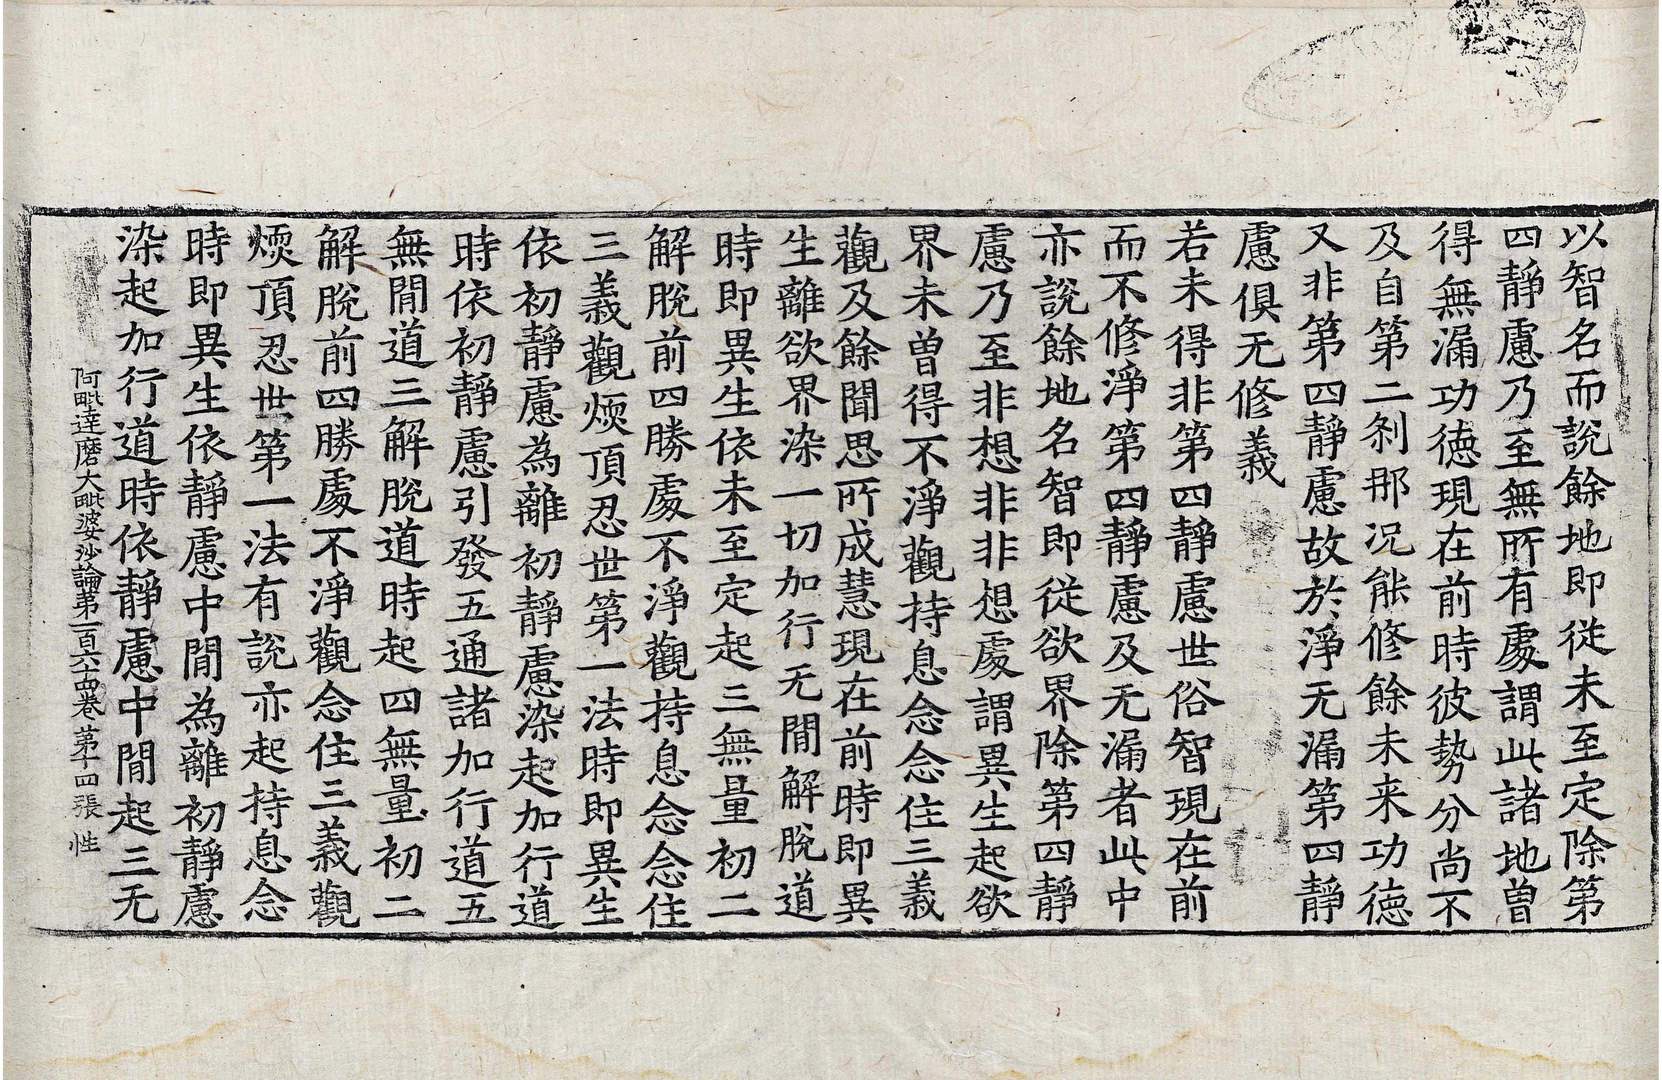 以智名而說餘地即從未至定除第
四靜慮乃至無所有處謂此諸地曾
得無漏功德現在前時彼勢分尚不
及自第二刹那况能修餘未来功德
又非第四靜慮故於淨无漏第四靜
慮俱无修義
若未得非第四靜慮世俗智現在前
而不修淨第四靜慮及无漏者此中
亦說餘地名智即從欲界除第四靜
慮乃至非想非非想處謂異生起欲
界未曽得不淨觀持息念念住三義
觀及餘聞思所成慧現在前時即異
生離欲界染一切加行无閒解脫道
時即異生依未至定起三無量初二
解脫前四勝處不淨觀持息念念住
三義觀煗頂忍世第一法時即異生
依初靜慮為離初靜慮染起加行道
時依初靜慮引發五通諸加行道五
無閒道三解脫道時起四無量初二
解脫前四勝處不淨觀念住三義觀
煗頂忍世第一法有說亦起持息念
時即異生依靜慮中閒為離初靜慮
染起加行道時依靜慮中閒起三无
阿毗達磨大毗婆沙論第一百六十四卷 第十四張 性